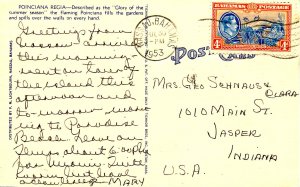 POINCIANA REGIA—Described as the "Glory of the
summer season" the flaming Poinciana fills the gardens
and spills over the walls on every hand.
Greetings from
Nassau. Arrived
this morning
went on tour of
the island this
afternoon and
to-morrow
ing to Paradise
Beach. Leave on
Tues about 6:00 PM
for Miami.
MARY
DISTRIBUTED BY
NASSAU, BAHAMAS
NASSAU-BAHAMAS
1953
BAHAMAS POSTAGE
4d 4d
POST CARD
Mrs. Geo Schnaus &
Clara
1010 Main St
Jasper
Indiana
U.S.A.